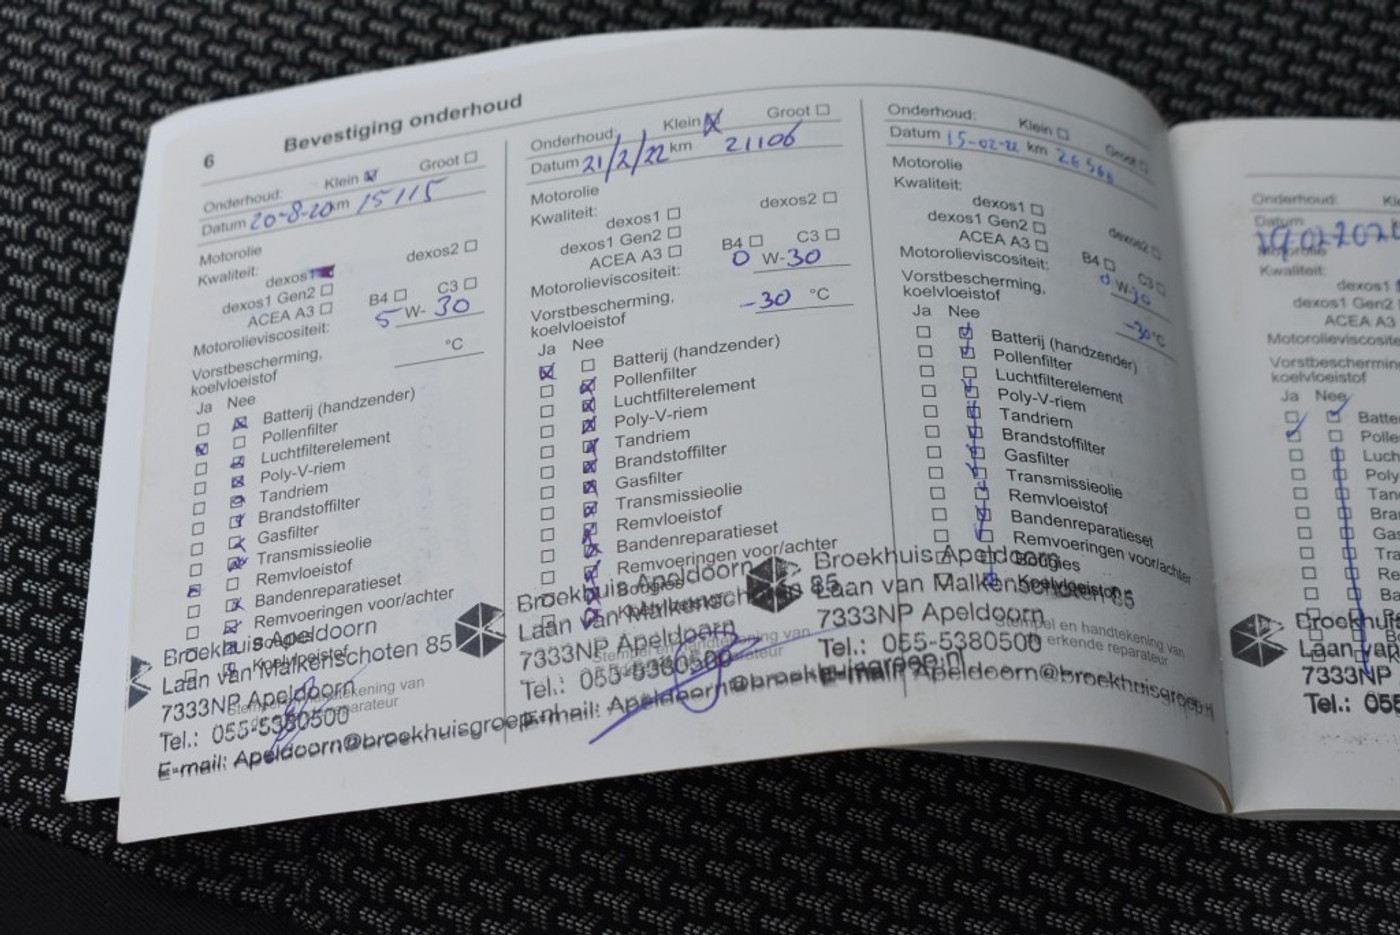 6 Bevestiging onderhoud
Onderhoud: Klein Groot
Datum 20-8-20 km 15115
Motorolie
Kwaliteit:
dexos1 dexos2
dexos1 Gen2
ACEA A3 B4 C3
Motorolieviscositeit: 5 W- 30
Vorstbescherming,
koelvloeistof °C
Ja Nee
Batterij (handzender)
Pollenfilter
Luchtfilterelement
Poly-V-riem
Tandriem
Brandstoffilter
Gasfilter
Transmissieolie
Remvloeistof
Bandenreparatieset
Remvoeringen voor/achter
Bougies
Koelvloeistof
Stempel en handtekening van
erkende reparateur
Broekhuis Apeldoorn
Laan van Malkenschoten 85
7333NP Apeldoorn
Tel.: 055-5380500
E-mail: Apeldoorn@broekhuisgroep.nl
Onderhoud: Klein Groot
Datum 21/2/22 km 21106
Motorolie
Kwaliteit:
dexos1 dexos2
dexos1 Gen2
ACEA A3 B4 C3
Motorolieviscositeit: 0 W-30
Vorstbescherming,
koelvloeistof -30 °C
Ja Nee
Batterij (handzender)
Pollenfilter
Luchtfilterelement
Poly-V-riem
Tandriem
Brandstoffilter
Gasfilter
Transmissieolie
Remvloeistof
Bandenreparatieset
Remvoeringen voor/achter
Bougies
Koelvloeistof
Stempel en handtekening van
erkende reparateur
Broekhuis Apeldoorn
Laan van Malkenschoten 85
7333NP Apeldoorn
Tel.: 055-5380500
E-mail: Apeldoorn@broekhuisgroep.nl
Onderhoud: Klein Groot
Datum 15-02-22 km
Motorolie
Kwaliteit:
dexos1 dexos2
dexos1 Gen2
ACEA A3 B4 C3
Motorolieviscositeit: 0 W-30
Vorstbescherming,
koelvloeistof -30°C
Ja Nee
Batterij (handzender)
Pollenfilter
Luchtfilterelement
Poly-V-riem
Tandriem
Brandstoffilter
Gasfilter
Transmissieolie
Remvloeistof
Bandenreparatieset
Remvoeringen voor/achter
Bougies
Koelvloeistof
Stempel en handtekening van
erkende reparateur
Broekhuis Apeldoorn
Laan van Malkenschoten 85
7333NP Apeldoorn
Tel.: 055-5380500
E-mail: Apeldoorn@broekhuisgroep.nl
Onderhoud: Kle
Datum
Motorolie
Kwaliteit:
dexos1
dexos1 Gen2
ACEA A3
Motorolieviscosite
Vorstbeschermin
koelvloeistof
Ja Nee
Batte
Polle
Luch
Poly-
Tan
Bra
Gas
Tra
Re
Ba
Broekhuis
Laan van
7333NP
Tel.: 055